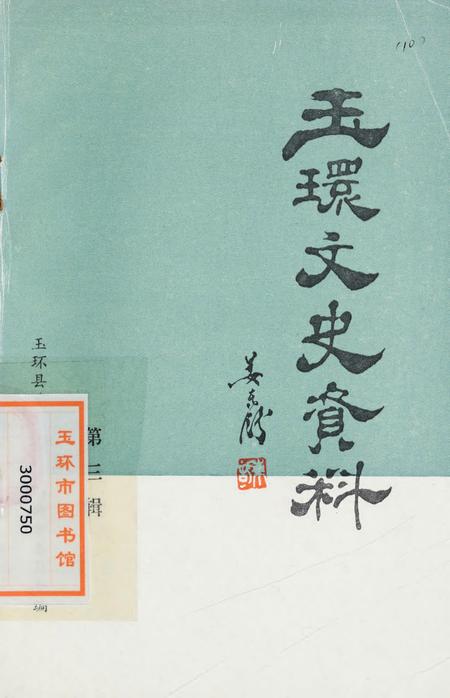 玉環文史資料
姜东舒
第三辑
玉环县
编
玉环市图书馆
3000750